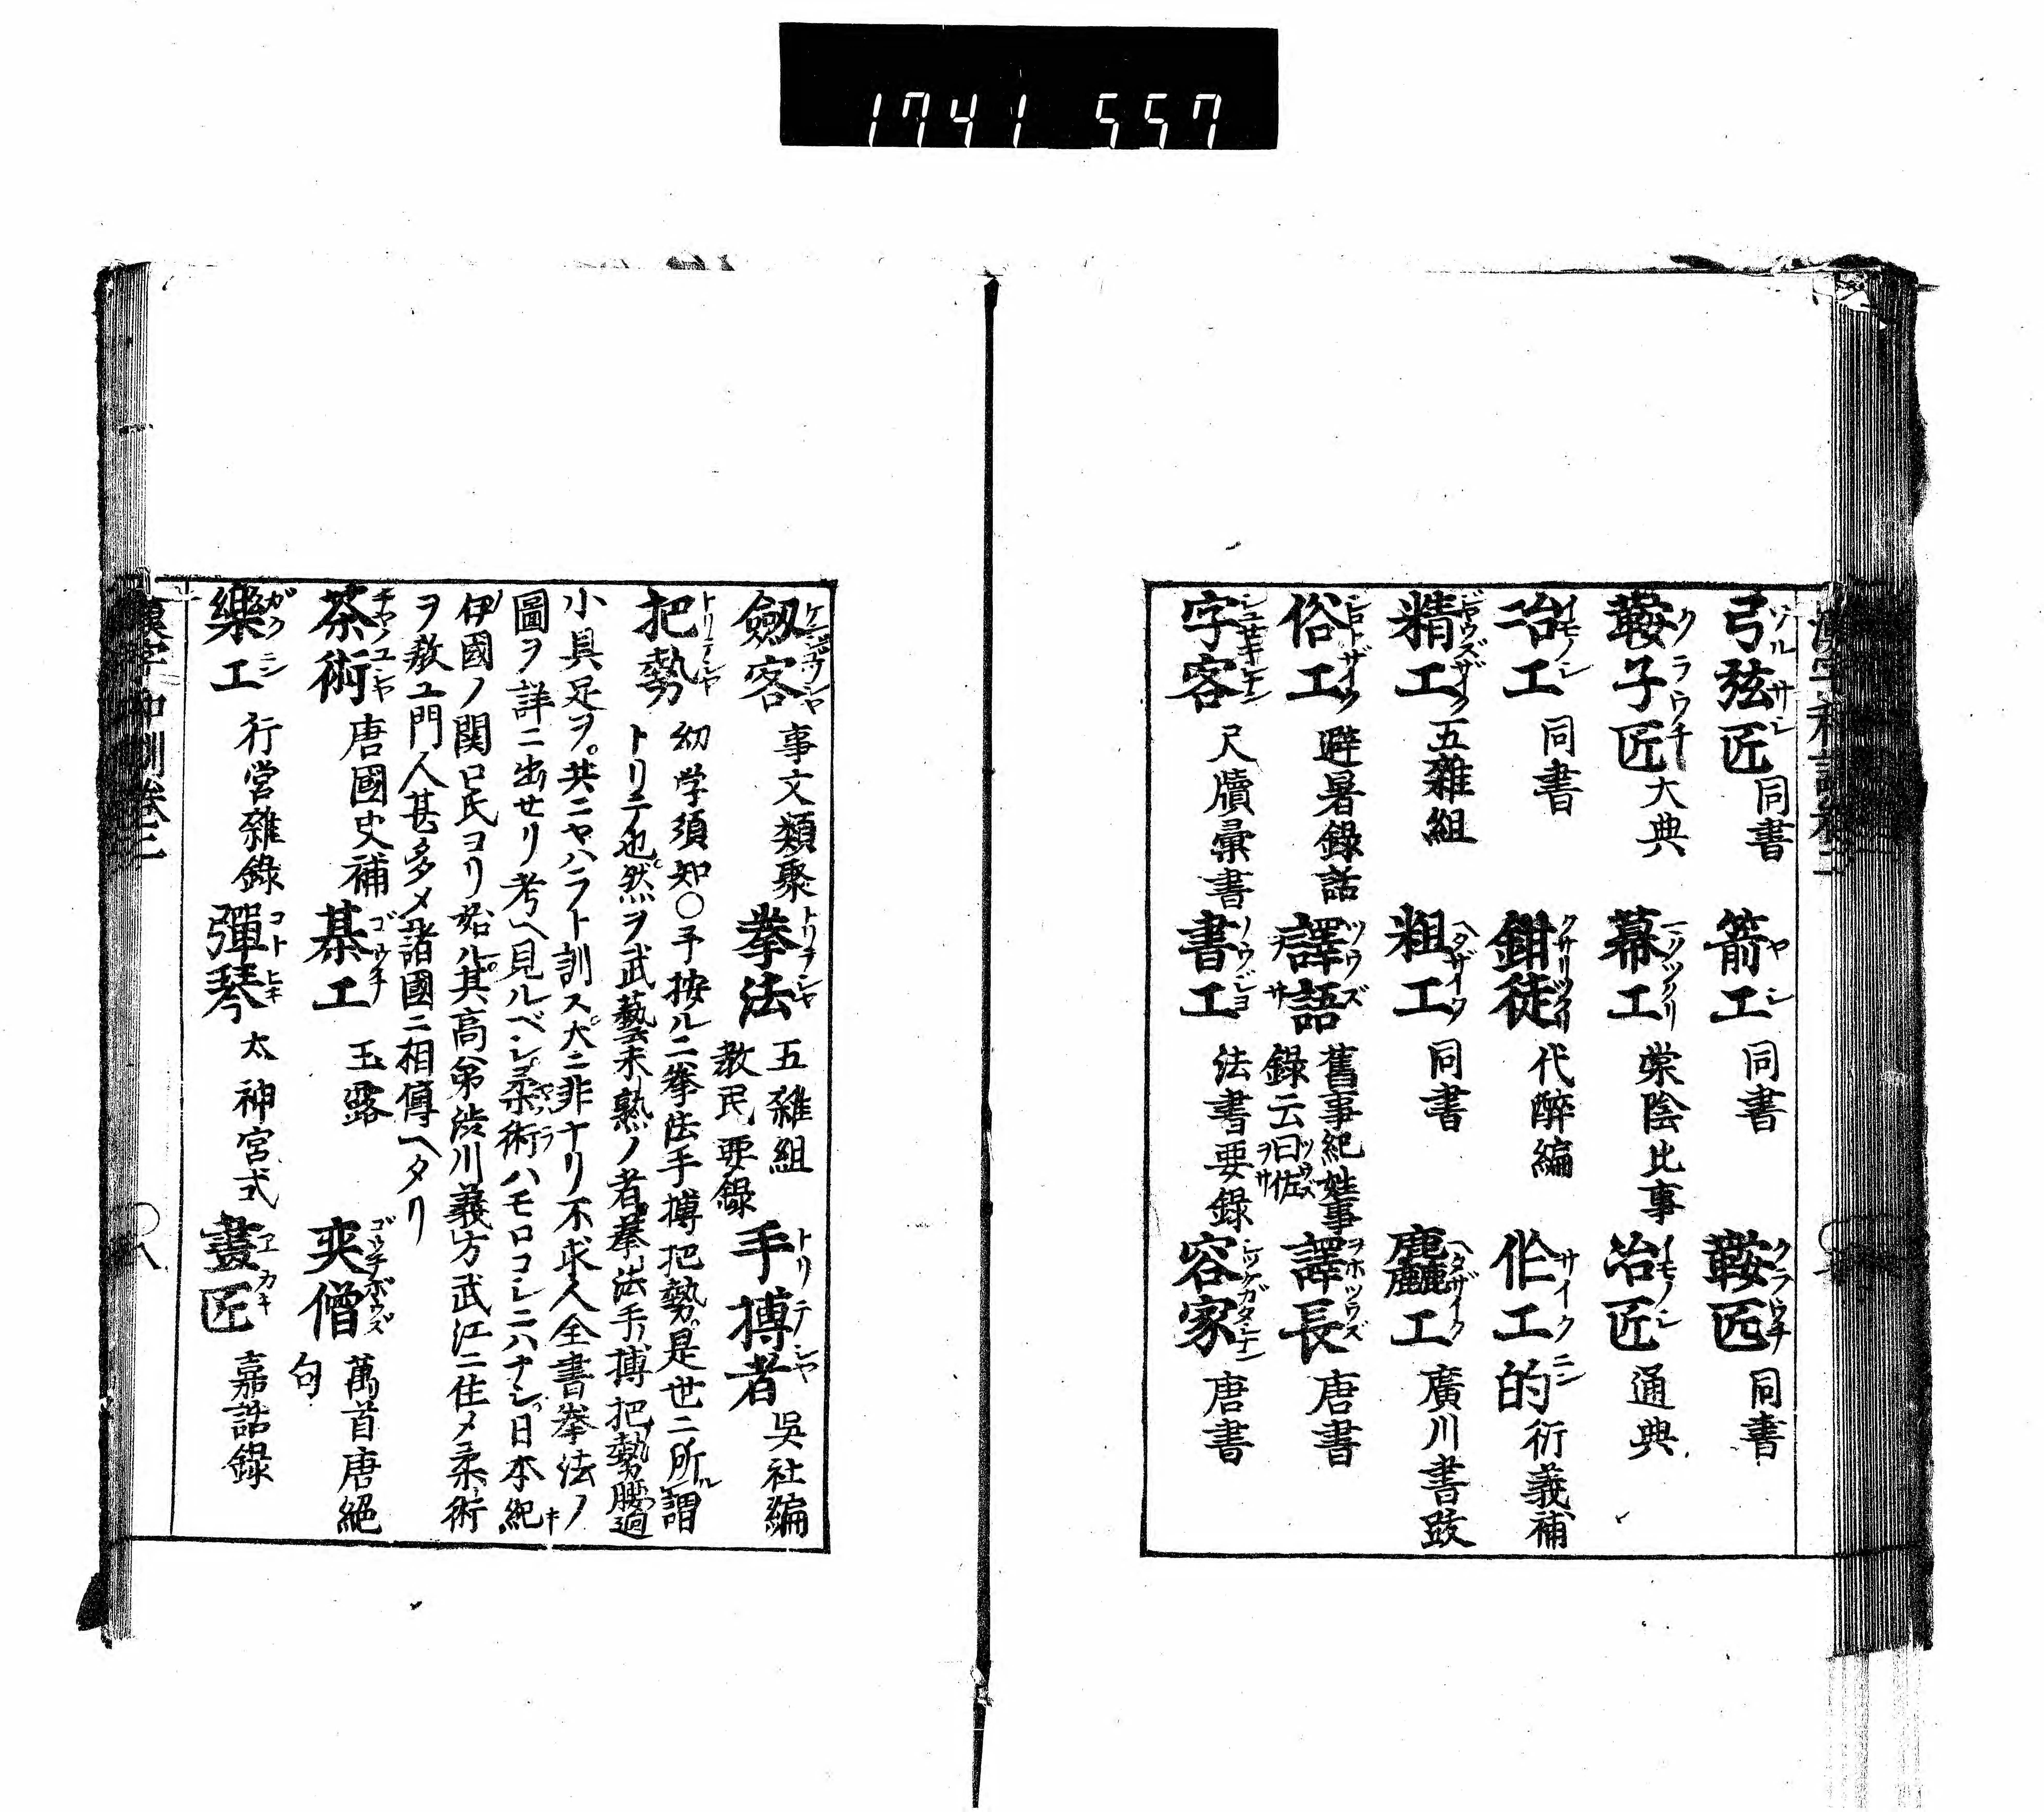 1741 557
弓弦匠 同書 箭工 同書 鞍匠 同書
鞍子匠 大典 幕工 棠陰比事 冶匠 通典
冶工 同書 鉗徒 代醉編 作工的 衍義補
精工 五雜組 粗工 同書 麤工 廣川書跋
俗工 避暑錄話 譯語 舊事紀姓事 譯長 唐書
錄云曰佐
字客 尺牘彙書 書工 法書要錄 容家 唐書
劔客 事文類聚 拳法 五雜組 手搏者 吳社編
教民要錄
把勢 幼学須知○予按ルニ拳法手搏把勢是世ニ所謂
トリテ也然ヲ武藝未熟ノ者拳法手搏把勢腰廻
小具足ヲ共ニヤハラト訓ス大ニ非ナリ不求人全書拳法ノ
圖ヲ詳ニ出セリ考ヘ見ルベシ柔術ハモロコシニハナシ日本紀
伊國ノ関口氏ヨリ始ル其高弟渋川義方武江ニ住メ柔術
ヲ教ユ門人甚多メ諸國ニ相傳ヘタリ
茶術 唐國史補 棊工 玉露 奕僧 萬首唐絕
句
樂工 行營雜錄 彈琴 太神宮式 畫匠 嘉話錄
漢字和訓卷三